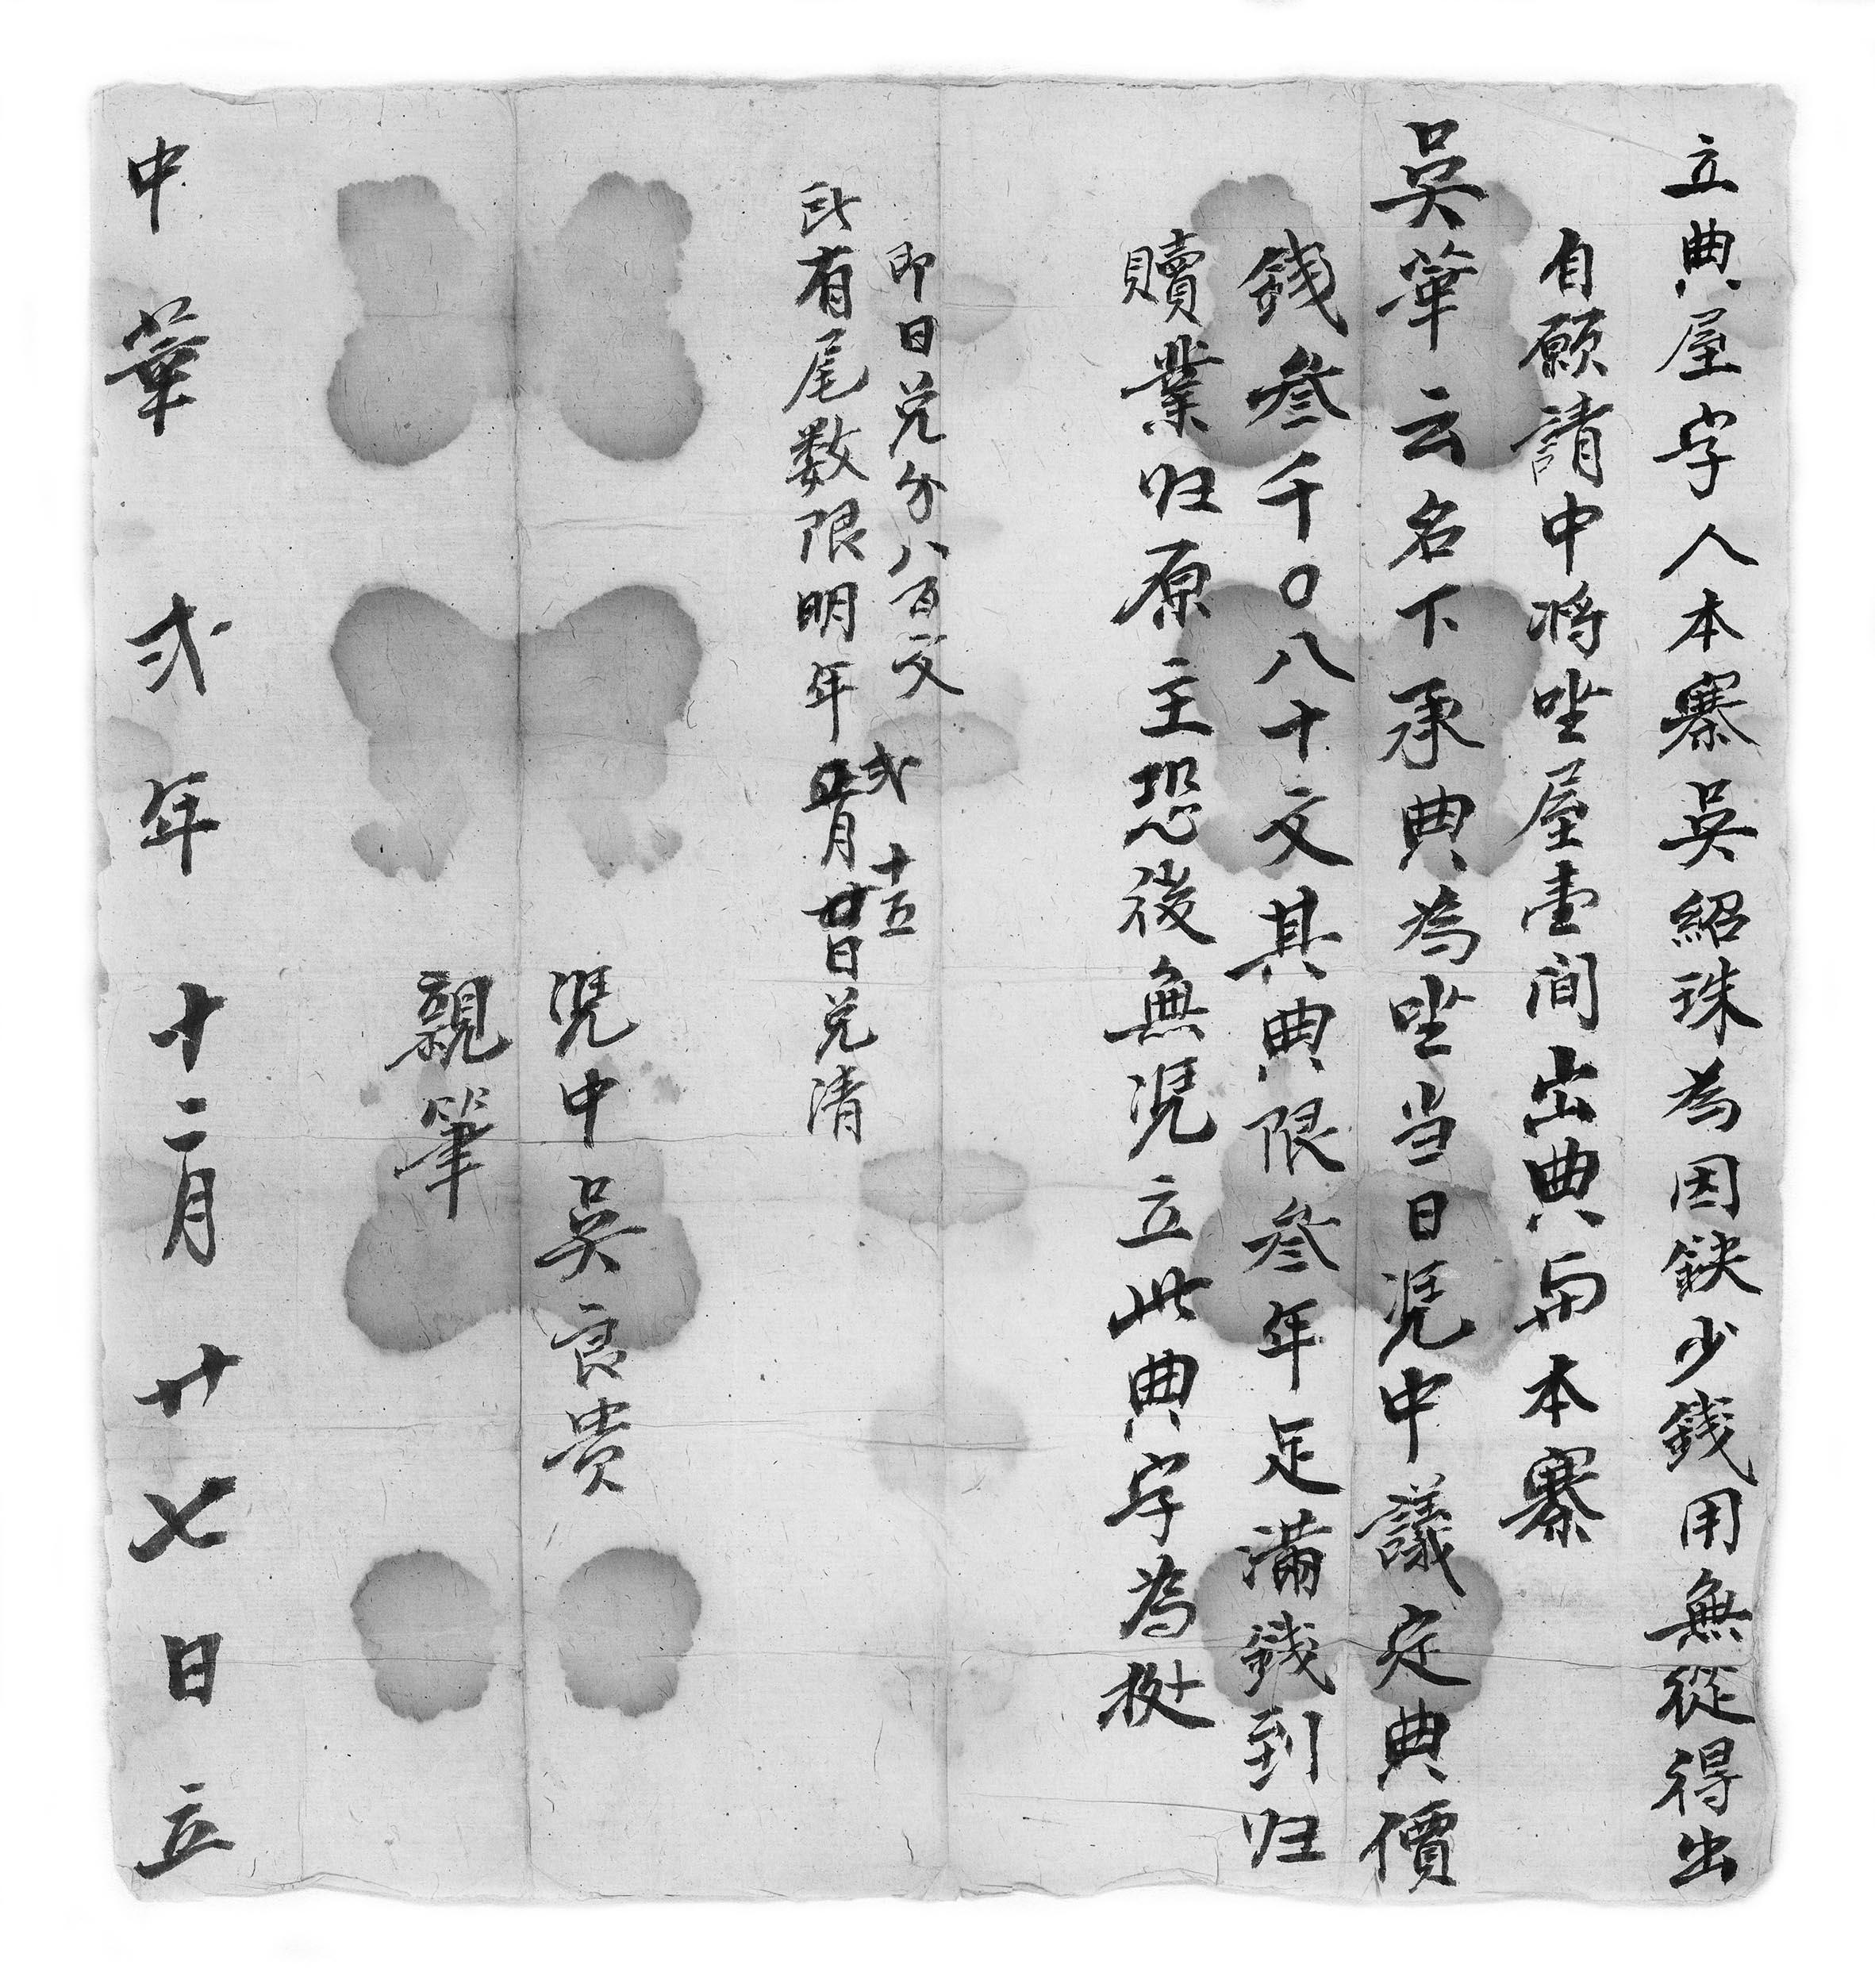 立典屋字人本寨吳紹珠為因缺少錢用無從得出
自願請中將坐屋壹间出典與本寨
吳華云名下承典為坐当日凭中議定典價
錢叁千〇八十文其典限叁年足滿錢到归
贖業归原主恐後無凭立此典字為挺
即日兑分八百文
所有尾数限明年弍月十五日兑清
凭中吳良贵
親筆
中華弍年十二月廿七日立